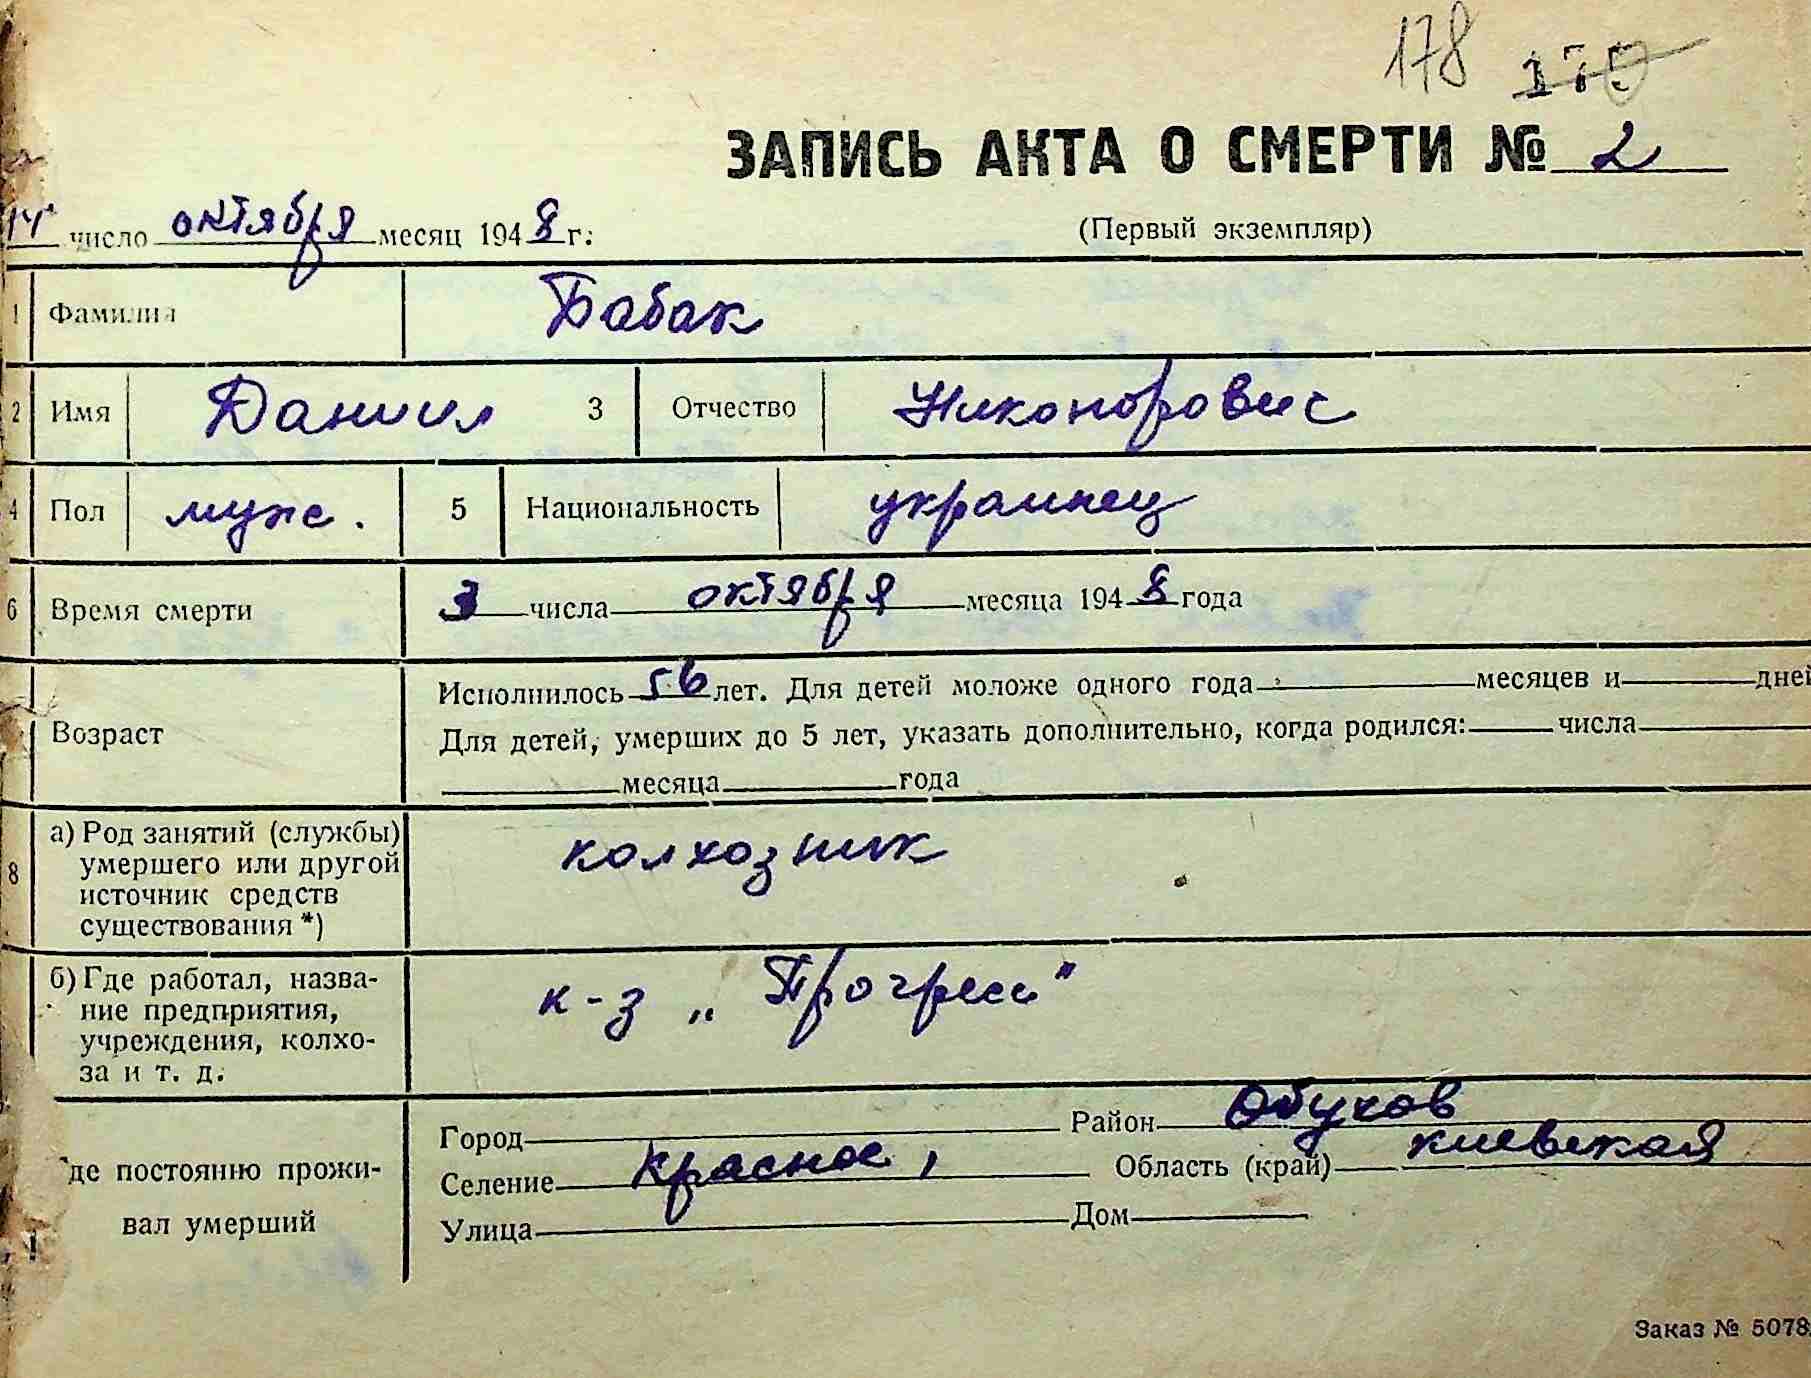 178 170
ЗАПИСЬ АКТА О СМЕРТИ № 2
14 число октября месяц 1948 г.
(Первый экземпляр)
1 Фамилия Бабак
2 Имя Даниил 3 Отчество Никонорович
4 Пол муж. 5 Национальность украинец
6 Время смерти 3 числа октября месяца 1948 года
Возраст
Исполнилось 56 лет. Для детей моложе одного года месяцев и дней
Для детей, умерших до 5 лет, указать дополнительно, когда родился: числа
месяца года
8 а) Род занятий (службы)
умершего или другой
источник средств
существования *)
колхозник
б) Где работал, назва-
ние предприятия,
учреждения, колхо-
за и т. д.
к-з „Прогресс"
де постоянно прожи-
вал умерший
Город Район Обухов
Селение Красное, Область (край) киевская
Улица Дом
Заказ № 5078